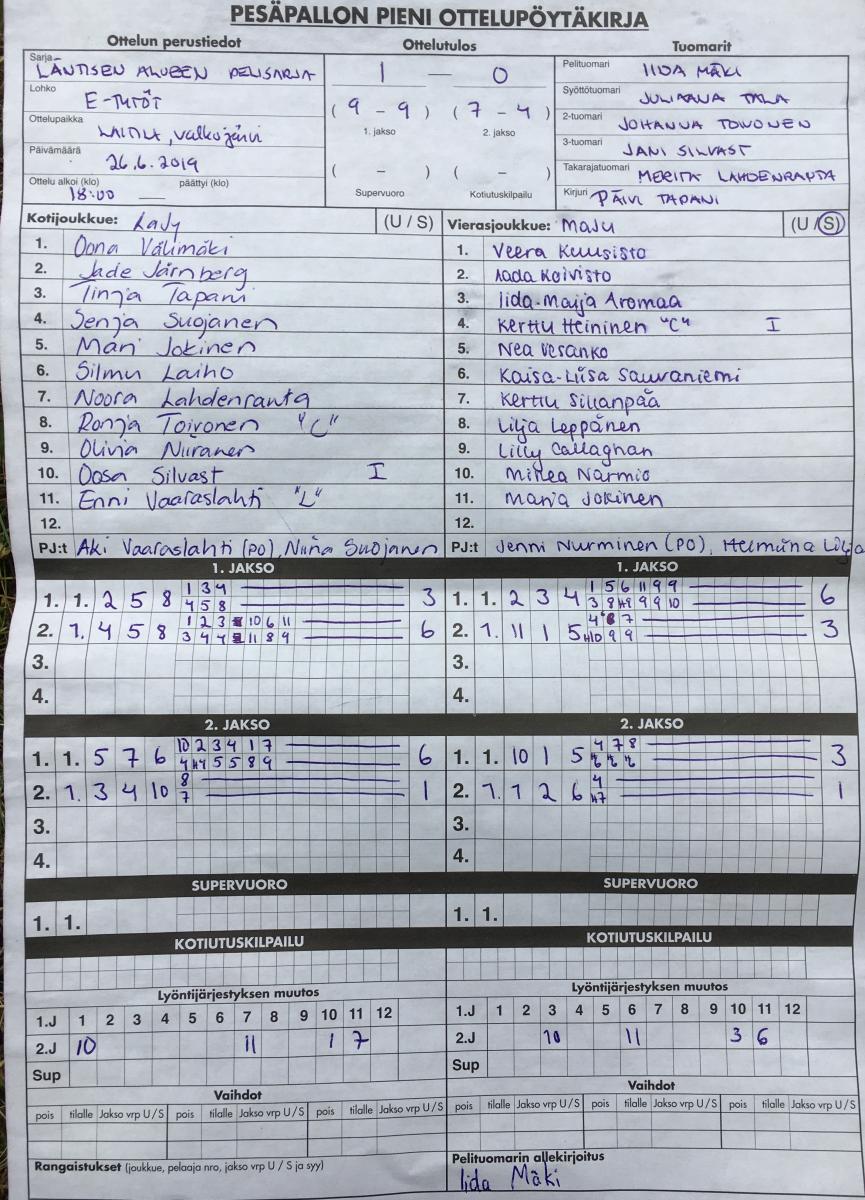 PESÄPALLON PIENI OTTELUPÖYTÄKIRJA
Ottelun perustiedot
Sarja
LÄNTISEN ALUEEN PELISARJA
Lohko
E-TYTÖT
Ottelupaikka
LAITILA, Valkojärvi
Päivämäärä
26.6.2019
Ottelu alkoi (klo) päättyi (klo)
18:00 —
Ottelutulos
1 — 0
( 9 - 9 ) ( 7 - 4 )
1. jakso 2. jakso
( - ) ( - )
Supervuoro Kotiutuskilpailu
Tuomarit
Pelituomari IIDA MÄKI
Syöttötuomari JULIAANA TALA
2-tuomari JOHANNA TOIVONEN
3-tuomari JANI SILVAST
Takarajatuomari MERITA LAHDENRANTA
Kirjuri PÄIVI TAPANI
Kotijoukkue: LaJy (U / S)
1. Oona Välimäki
2. Jade Järnberg
3. Tinja Tapani
4. Senja Suojanen
5. Mari Jokinen
6. Silmu Laiho
7. Noora Lahdenranta
8. Ronja Toivonen "C"
9. Olivia Niiranen
10. Oosa Silvast I
11. Enni Vaaraslahti "L"
12.
PJ:t Aki Vaaraslahti (PO), Niina Suojanen
Vierasjoukkue: MaJu (U / S)
1. Veera Kuusisto
2. Aada Koivisto
3. Iida-Maija Aromaa
4. Kerttu Heininen "C" I
5. Nea Vesanko
6. Kaisa-Liisa Sauvaniemi
7. Kerttu Sillanpää
8. Lilja Leppänen
9. Lilly Callaghan
10. Minea Närmiö
11. Marja Jokinen
12.
PJ:t Jenni Nurminen (PO), Helmiina Lilja
1. JAKSO
1. 1. 2 5 8 1 3 4 3
4 5 8
2. 7. 4 5 8 1 2 3 10 6 11 6
3 4 4 11 8 9
3.
4.
1. JAKSO
1. 1. 2 3 4 1 5 6 11 9 9 6
3 8 H8 9 9 10
2. 7. 11 1 5 4 7 3
H10 9 9
3.
4.
2. JAKSO
1. 1. 5 7 6 10 2 3 4 1 7 6
4 H4 5 5 8 9
2. 7. 3 4 10 8 1
7
3.
4.
2. JAKSO
1. 1. 10 1 5 4 7 8 3
2. 7. 7 2 6 4 1
H7
3.
4.
SUPERVUORO
1. 1.
SUPERVUORO
1. 1.
KOTIUTUSKILPAILU
KOTIUTUSKILPAILU
Lyöntijärjestyksen muutos
1.J 1 2 3 4 5 6 7 8 9 10 11 12
2.J 10 11 1 7
Sup
Lyöntijärjestyksen muutos
1.J 1 2 3 4 5 6 7 8 9 10 11 12
2.J 10 11 3 6
Sup
Vaihdot
pois tilalle Jakso vrp U / S pois tilalle Jakso vrp U / S pois tilalle Jakso vrp U / S
Vaihdot
pois tilalle Jakso vrp U / S pois tilalle Jakso vrp U / S pois tilalle Jakso vrp U / S
Rangaistukset (joukkue, pelaaja nro, jakso vrp U / S ja syy)
Pelituomarin allekirjoitus
Iida Mäki